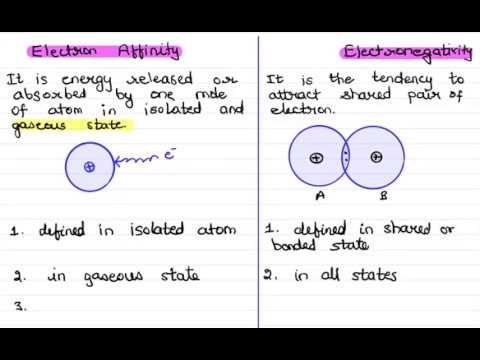 Electron Affinity
It is energy released or
absorbed by one mole
of atom in isolated and
gaseous state.
e⁻
1. defined in isolated atom
2. in gaseous state
3.
Electronegativity
It is the tendency to
attract shared pair of
electron.
A B
1. defined in shared or
bonded state
2. in all states